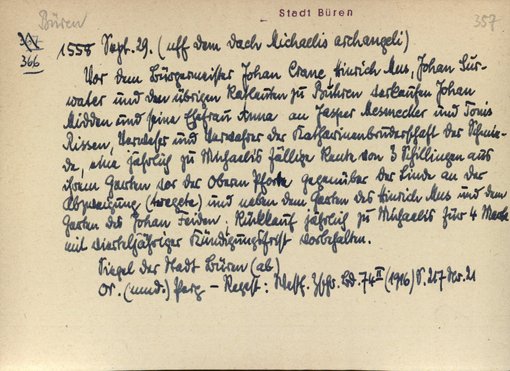 Büren
Stadt Büren
357
366
1558 Sept. 29. (uff dem dach Michaelis archangeli)
Vor dem Bürgermeister Johan Crane, Hinrich Mus, Johan Sur-
water und den übrigen Ratleuten zu Bühren verkaufen Johan
Midden und seine Ehefrau Anna an Jasper Mesmecker und Tonis
Rissen, Verweser und Verwahrer der Katharinenbruderschaft der Schmie-
de, eine jährlich zu Michaelis fällige Rente von 3 Schillingen aus
ihrem Garten vor der Obern Pforte gegenüber der Linde an der
Abzweigung (twegete) und neben dem Garten des Hinrich Mus und dem
Garten des Johan Feiden. Rückkauf jährlich zu Michaelis für 4 Mark
mit vierteljähriger Kündigungsfrist vorbehalten.
Siegel der Stadt Büren (ab)
Or. (mnd.) Perg. – Regest: Westf. Zschr. Bd. 74 II (1916) S. 217 Nr. 21